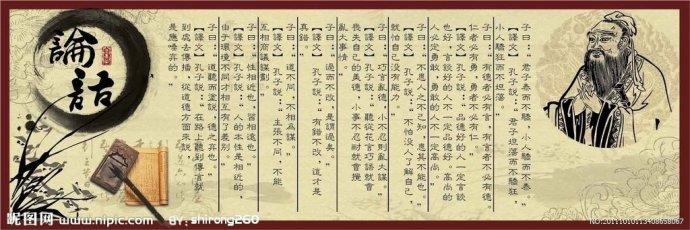 子曰：“君子泰而不驕，小人驕而不泰。”
【譯文】孔子說：“君子坦蕩而不驕狂，
小人驕狂而不坦蕩。”
子曰：“有德者必有言，有言者不必有德。
仁者必有勇，勇者不必有仁。”
【譯文】孔子說：“品德好的人一定言談
也好，言談好的人不一定品德好。高尚的
人必定勇敢，勇敢的人不一定高尚。”
子曰：“不患人之不己知，患其不能也。”
【譯文】孔子說：“不怕沒人了解自己，
就怕自己沒有能力。”
子曰：“巧言亂德，小不忍則亂大謀。”
【譯文】孔子說：“聽從花言巧語就會
喪失自己的美德，小事不忍耐就會攪
亂大事情。”
子曰：“過而不改，是謂過矣。”
【譯文】孔子說：“有錯不改，這才是
真錯。”
子曰：“道不同，不相爲謀。”
【譯文】孔子說：“主張不同，不能
互相商議謀劃。”
子曰：“性相近也，習相遠也。”
【譯文】孔子說：“人的本性是相近的，
由于環境不同才相互有了差別。”
子曰：“道聽而塗說，德之棄也。”
【譯文】孔子說：“在路上聽到傳言就
到處去傳播，從道德方面來說，
是應唾棄的。”
論語
昵图网 www.nipic.com BY: shirong260
NO:20111010113408658067